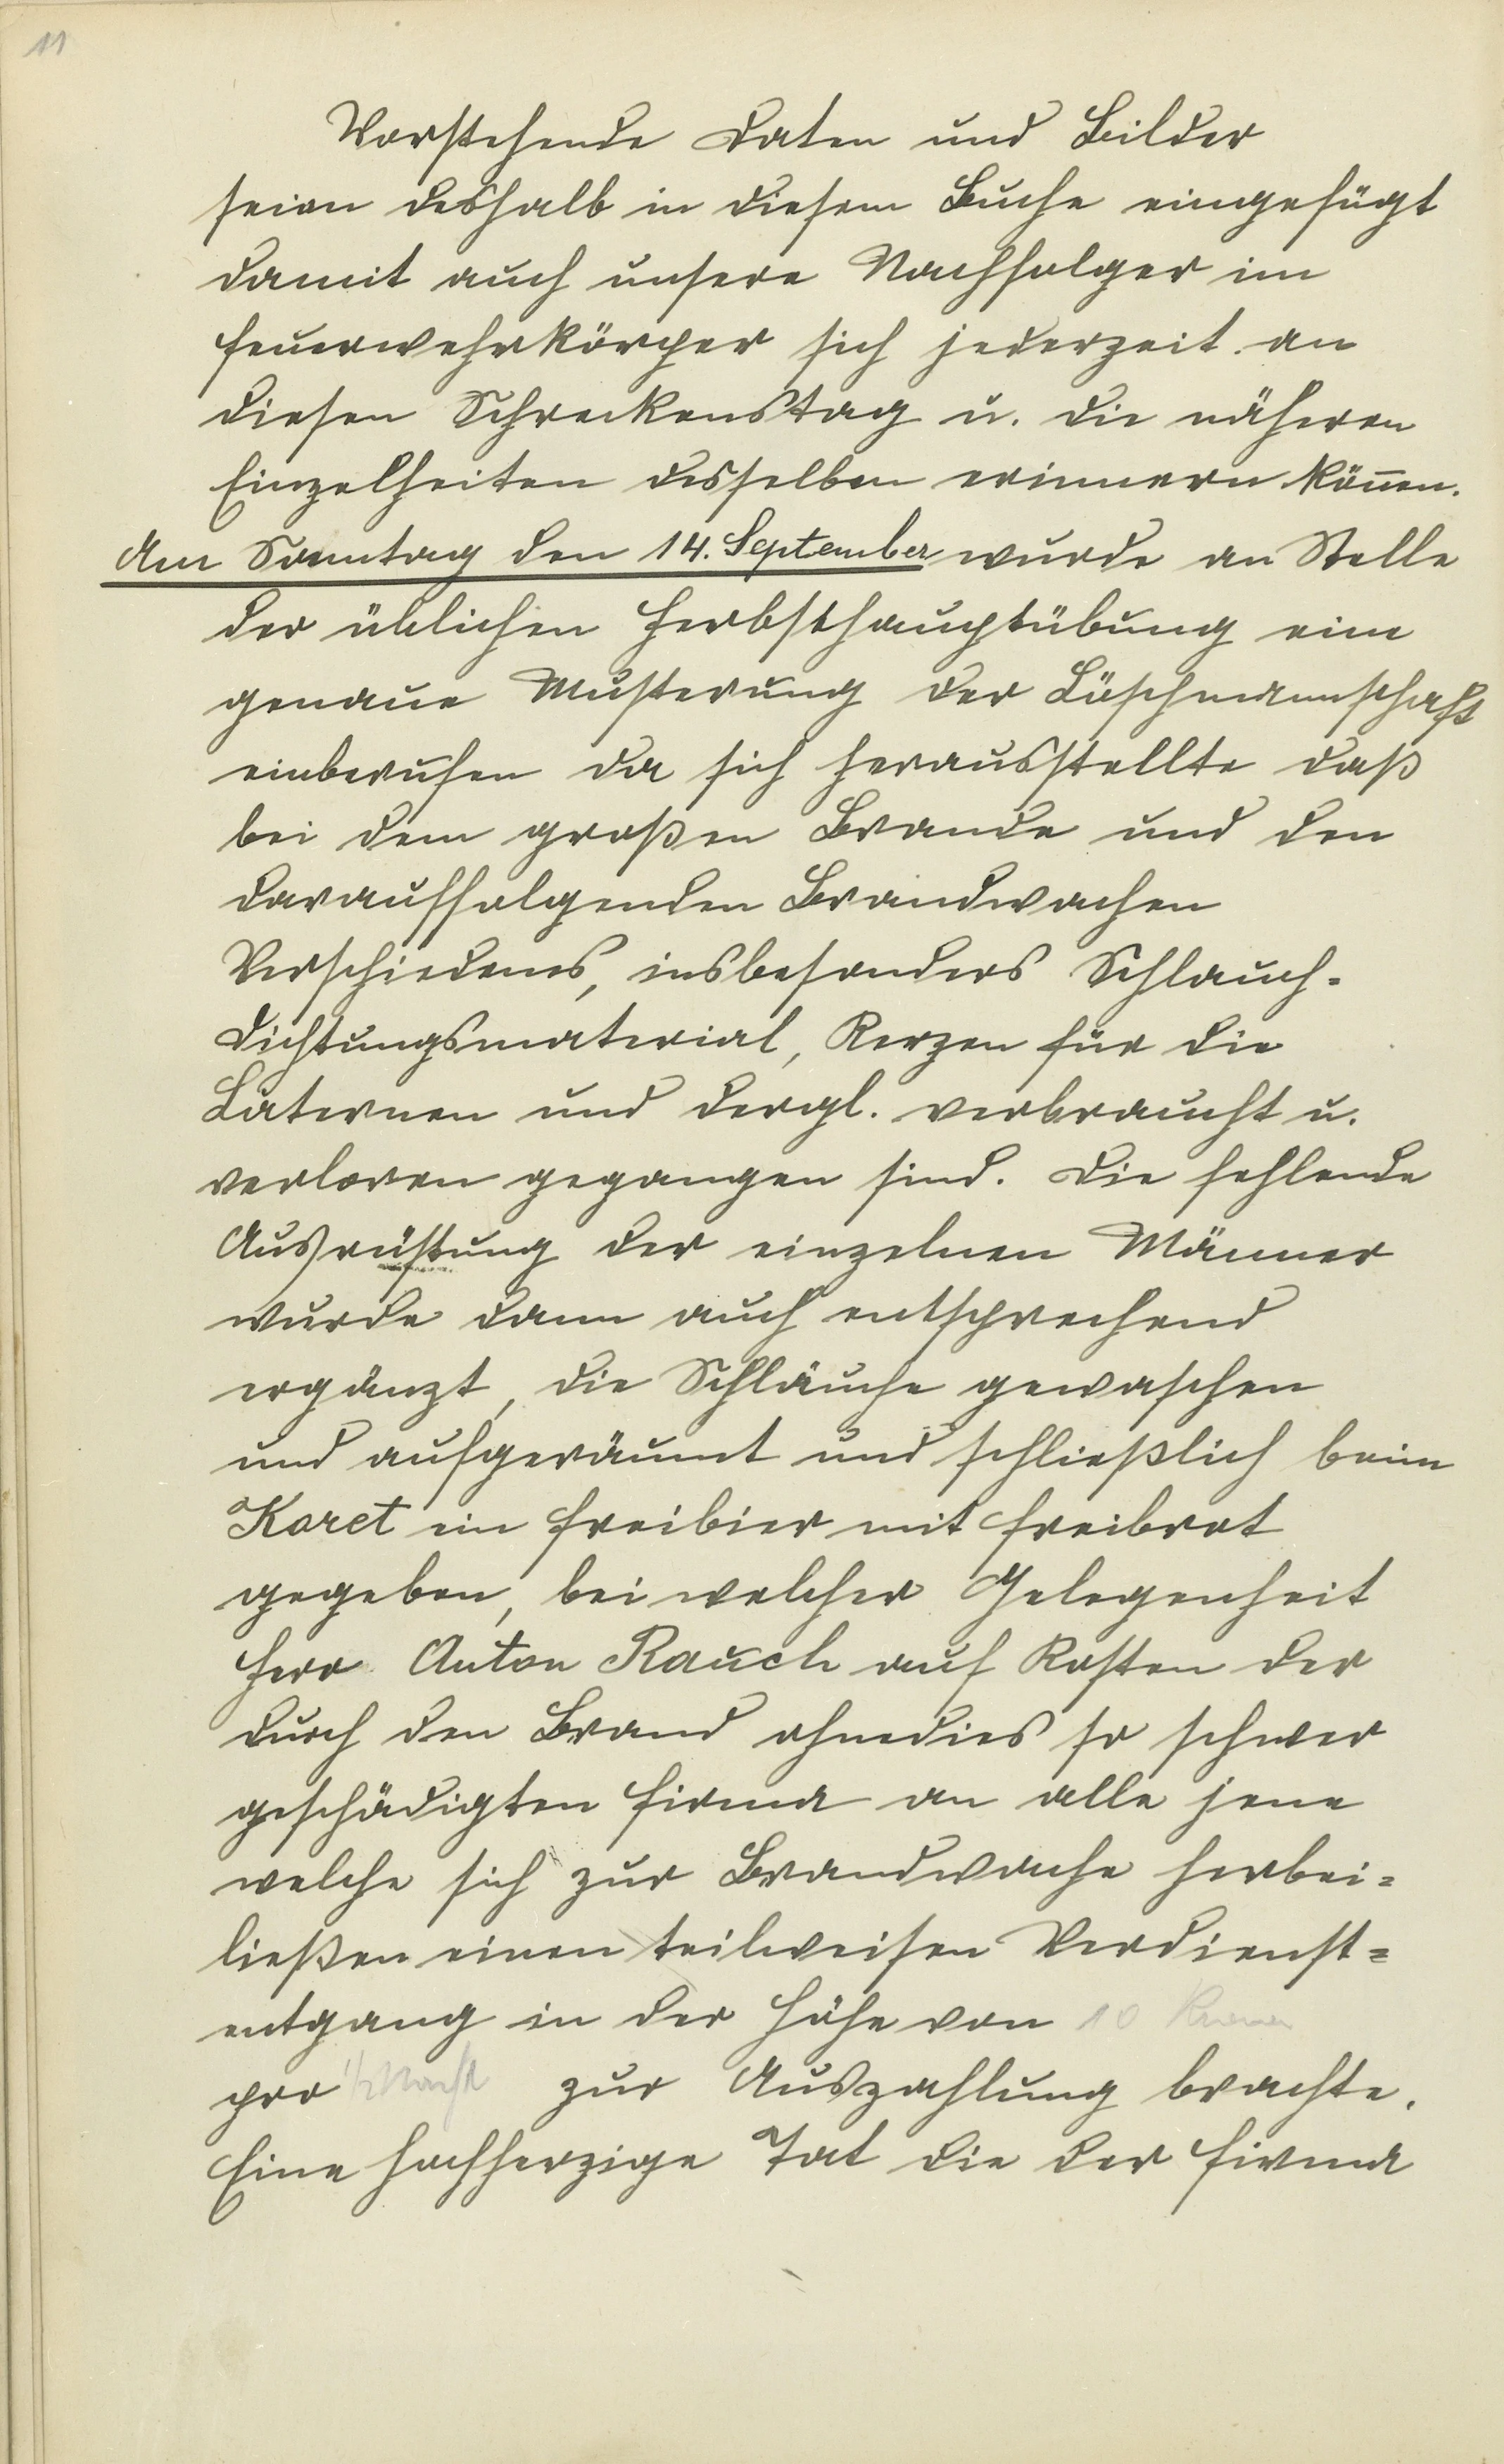 11
Vorstehende Daten und Bilder
seien deshalb in diesem Buche eingefügt
damit auch unsere Nachfolger im
Feuerwehrkörper sich jederzeit an
diesen Schreckenstag u. die näheren
Einzelheiten desselben erinnern können.
Am Sonntag den 14. September wurde an Stelle
der üblichen Herbsthauptübung eine
genaue Musterung der Löschmannschaft
einberufen da sich herausstellte daß
bei dem großen Brande und den
darauffolgenden Brandwachen
Verschiedenes, insbesonders Schlauch-
dichtungsmaterial, Kerzen für die
Laternen und dergl. verbraucht u.
verloren gegangen sind. Die fehlende
Ausrüstung der einzelnen Männer
wurde dann auch entsprechend
ergänzt, die Schläuche gewaschen
und aufgeräumt und schließlich beim
Koret ein Freibier mit Freibrot
gegeben, bei welcher Gelegenheit
Herr Anton Rauch auf Kosten der
durch den Brand ohnedies so schwer
geschädigten Firma an alle jene
welche sich zur Brandwache herbei=
ließen einen teilweisen Verdienst=
entgang in der Höhe von 10 Kronen
pro 1/2 Nacht zur Auszahlung brachte.
Eine hochherzige Tat die der Firma